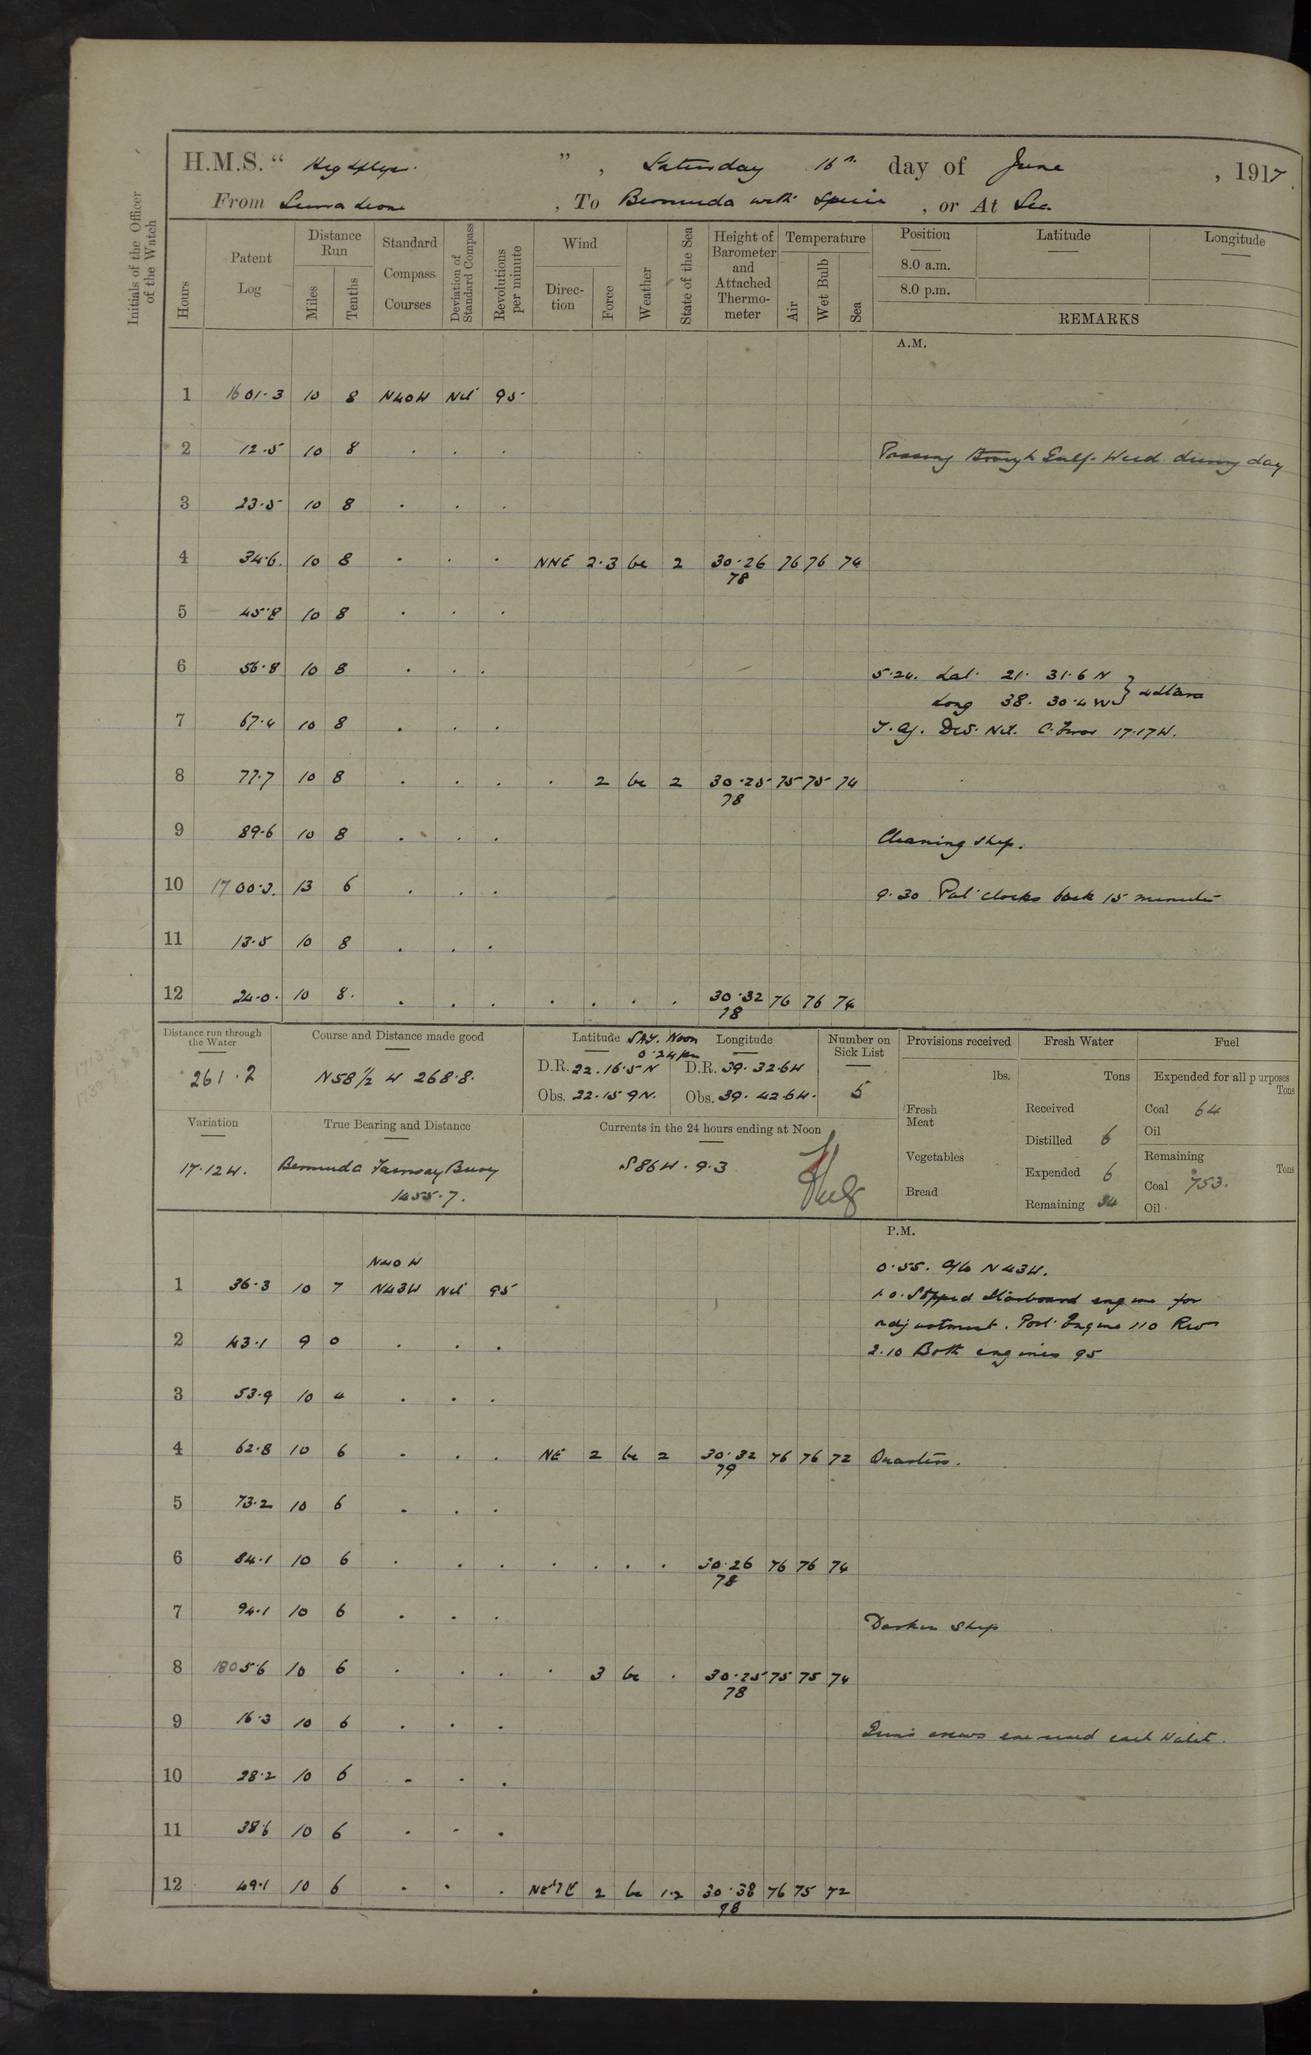 H.M.S. “ Highflyer ” , Saturday 16th day of June , 1917.
From Sierra Leone , To Bermuda with Specie , or At Sea
Initials of the Officer of the Watch
Hours Patent Log Distance Run Miles Tenths Standard Compass Courses Deviation of Standard Compass Revolutions per minute Wind Direc-tion Force Weather State of the Sea Height of Barometer and Attached Thermo-meter Temperature Air Wet Bulb Sea Position Latitude Longitude
8.0 a.m.
8.0 p.m.
REMARKS
A.M.
1 1601.3 10 8 N40W Nil 95
2 12.5 10 8 . . . Passing through Gulf-Weed during day
3 23.5 10 8 . . .
4 34.6. 10 8 . . . NNE 2.3 bc 2 30.26 76 76 74
78
5 45.8 10 8 . . .
6 56.8 10 8 . . . 5.24. Lat. 21. 31.6 N
Long 38. 30.4 W }
7 67.4 10 8 . . . T. Az. Dev. Nil. C. Error 17.17W.
8 77.7 10 8 . . . . 2 bc 2 30.25 75 75 74
78
9 89.6 10 8 . . . Cleaning ship.
10 1700.3. 13 6 . . . 9.30 Put clocks back 15 minutes
11 13.5 10 8 . . .
12 24.0. 10 8. . . . . . . . 30.32 76 76 74
78
Distance run through the Water Course and Distance made good Latitude Longitude Number on Sick List Provisions received Fresh Water Fuel
SAT. Noon
0.24 pm
261.2 N58½ W 268.8. D.R. 22.16.5 N D.R. 39.32.6W lbs. Tons Expended for all purposes Tons
Obs. 22.15.9N. Obs. 39.42.6W. 5 Fresh Meat Received Coal 64
Distilled 6 Oil
Variation True Bearing and Distance Currents in the 24 hours ending at Noon Vegetables Expended 6 Remaining Tons
17.12W. Bermuda Fairway Buoy S86W. 9.3 Bread Remaining 34 Coal 753.
1455.7. Oil
P.M.
N40W 0.55. A/c N43W.
1 36.3 10 7 N43W Nil 95 1.0. Stopped Starboard engine for
adjustment. Port Engine 110 Revs
2 43.1 9 0 . . . 2.10 Both engines 95
3 53.9 10 4 . . .
4 62.8 10 6 . . . NE 2 bc 2 30.32 76 76 72 Quarters.
79
5 73.2 10 6 . . .
6 84.1 10 6 . . . . . . . 30.26 76 76 74
78
7 94.1 10 6 . . . Darken Ship
8 1805.6 10 6 . . . . 3 bc . 30.25 75 75 74
78
9 16.3 10 6 . . . Guns crews exercised each Watch.
10 28.2 10 6 . . .
11 38.6 10 6 . . .
12 49.1 10 6 . . . NE'ly 2 bc 1.2 30.38 76 75 72
78